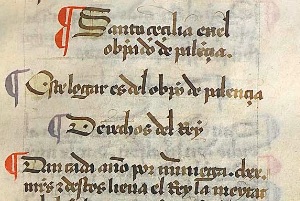 ¶ Santa cecilia en el
obp̃do de palençia.
¶ Este logar es del obp̃o de palençia
¶ Derechos del Rey
¶ Dan cada año por
mrs̃ destos lieua el Rey la meytat